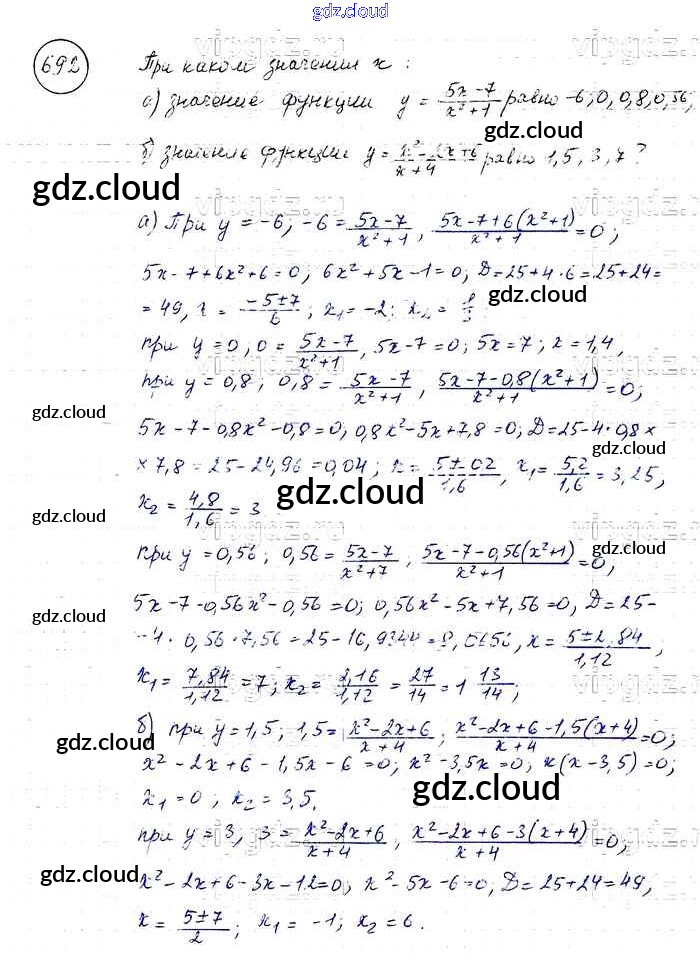 gdz.cloud
692 При каком значении x :
а) значение функции y = (5x-7)/(x²+1) равно -6; 0; 0,8; 0,56;
gdz.cloud
б) значение функции y = (x²-2x+6)/(x+4) равно 1,5, 3, 7?
gdz.cloud
а) При y = -6; -6 = (5x-7)/(x²+1), (5x-7+6(x²+1))/(x²+1) = 0;
5x-7+6x²+6=0; 6x²+5x-1=0; D=25+4·6=25+24=
gdz.cloud
= 49, x = (-5±7)/6; x₁=-2; x₂ =
при y=0, 0 = (5x-7)/(x²+1), 5x-7=0; 5x=7; x=1,4,
при y=0,8; 0,8 = (5x-7)/(x²+1), (5x-7-0,8(x²+1))/(x²+1) = 0;
gdz.cloud
5x-7-0,8x²-0,8=0; 0,8x²-5x+7,8=0; D=25-4·0,8×
gdz.cloud
×7,8=25-24,96=0,04; x = (5±0,2)/1,6, x₁ = 5,2/1,6 = 3,25,
gdz.cloud
x₂ = 4,8/1,6 = 3
gdz.cloud
при y=0,56; 0,56 = (5x-7)/(x²+7), (5x-7-0,56(x²+1))/(x²+1) = 0,
gdz.cloud
5x-7-0,56x²-0,56=0; 0,56x²-5x+7,56=0, D=25-
gdz.cloud
-4·0,56·7,56=25-16,9344=8,0656, x = (5±2,84)/1,12,
x₁ = 7,84/1,12 = 7; x₂ = 2,16/1,12 = 27/14 = 1 13/14;
б) при y=1,5; 1,5 = (x²-2x+6)/(x+4); (x²-2x+6-1,5(x+4))/(x+4) = 0;
gdz.cloud
x²-2x+6-1,5x-6=0; x²-3,5x=0; x(x-3,5)=0;
gdz.cloud
x₁=0; x₂=3,5.
при y=3, 3 = (x²-2x+6)/(x+4), (x²-2x+6-3(x+4))/(x+4) = 0;
gdz.cloud
gdz.cloud
x²-2x+6-3x-12=0; x²-5x-6=0, D=25+24=49,
x = (5±7)/2; x₁=-1; x₂=6.